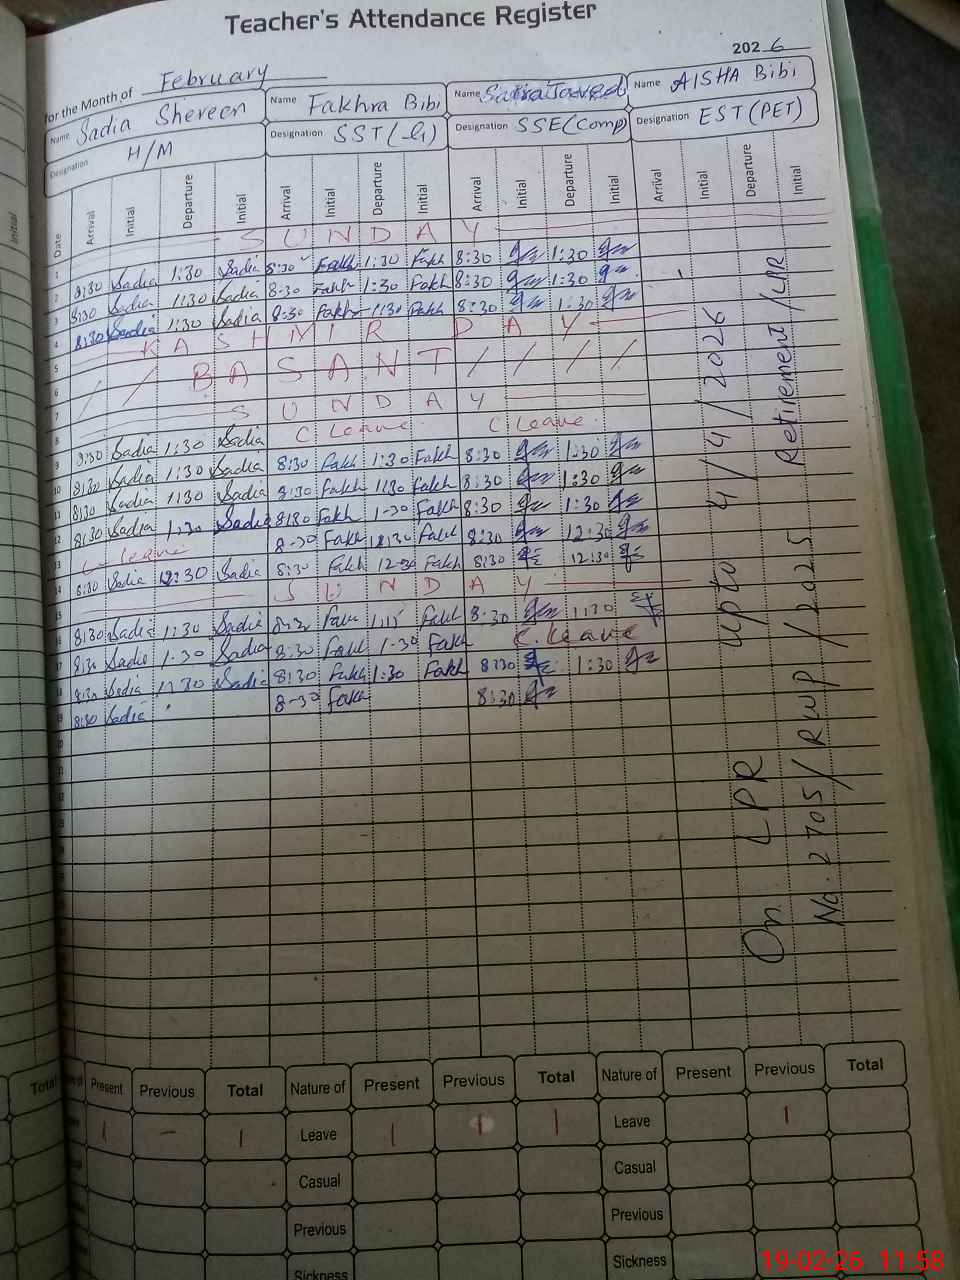 Teacher's Attendance Register
2026
for the Month of February
Name Sadia Shereen Name Fakhra Bibi Name Name AISHA Bibi
Designation H/M Designation SST (G) Designation SSE (Comp) Designation EST (PET)
Date Arrival Initial Departure Initial Arrival Initial Departure Initial Arrival Initial Departure Initial Arrival Initial Departure Initial
1 SUNDAY
2 8:30 Sadia 1:30 Sadia 8:30 Fakh 1:30 Fakh 8:30 1:30
3 8:30 Sadia 1:30 Sadia 8-30 Fakh 1:30 Fakh 8:30 1:30
4 8:30 Sadia 1:30 Sadia 8:30 Fakh 1:30 Fakh 8:30 1:30
5 KASHMIR DAY
6 / / BASANT / / / /
7
8 SUNDAY
9 8:30 Sadia 1:30 Sadia C Leave C Leave
10 8:30 Sadia 1:30 Sadia 8:30 Fakh 1:30 Fakh 8:30 1:30
11 8:30 Sadia 1:30 Sadia 8:30 Fakh 1:30 Fakh 8:30 1:30
12 8:30 Sadia 1:30 Sadia 8:30 Fakh 1-30 Fakh 8:30 1:30
13 C leave 8-30 Fakh 12:30 Fakh 8:30 12:30
14 8:30 Sadia 12:30 Sadia 8:30 Fakh 12-30 Fakh 8:30 12:30
15 SUNDAY
16 8:30 Sadia 1:30 Sadia Fakh Fakh 8:30 1:30
17 8:30 Sadia 1:30 Sadia 8:30 Fakh 1-30 Fakh C. Leave
18 8:30 Sadia 1:30 Sadia 8:30 Fakh 1:30 Fakh 8:30 1:30
19 8:30 Sadia 8-30 Fakh 8:30
On LPR upto 4/4/2026
No. 2705/RWP/2025 Retirement/LPR
Present Previous Total Nature of Present Previous Total Nature of Present Previous Total
1 – 1 Leave 1 1 1 Leave 1
Casual Casual
Previous Previous
Sickness Sickness
Total
Initial
19-02-26 11:58